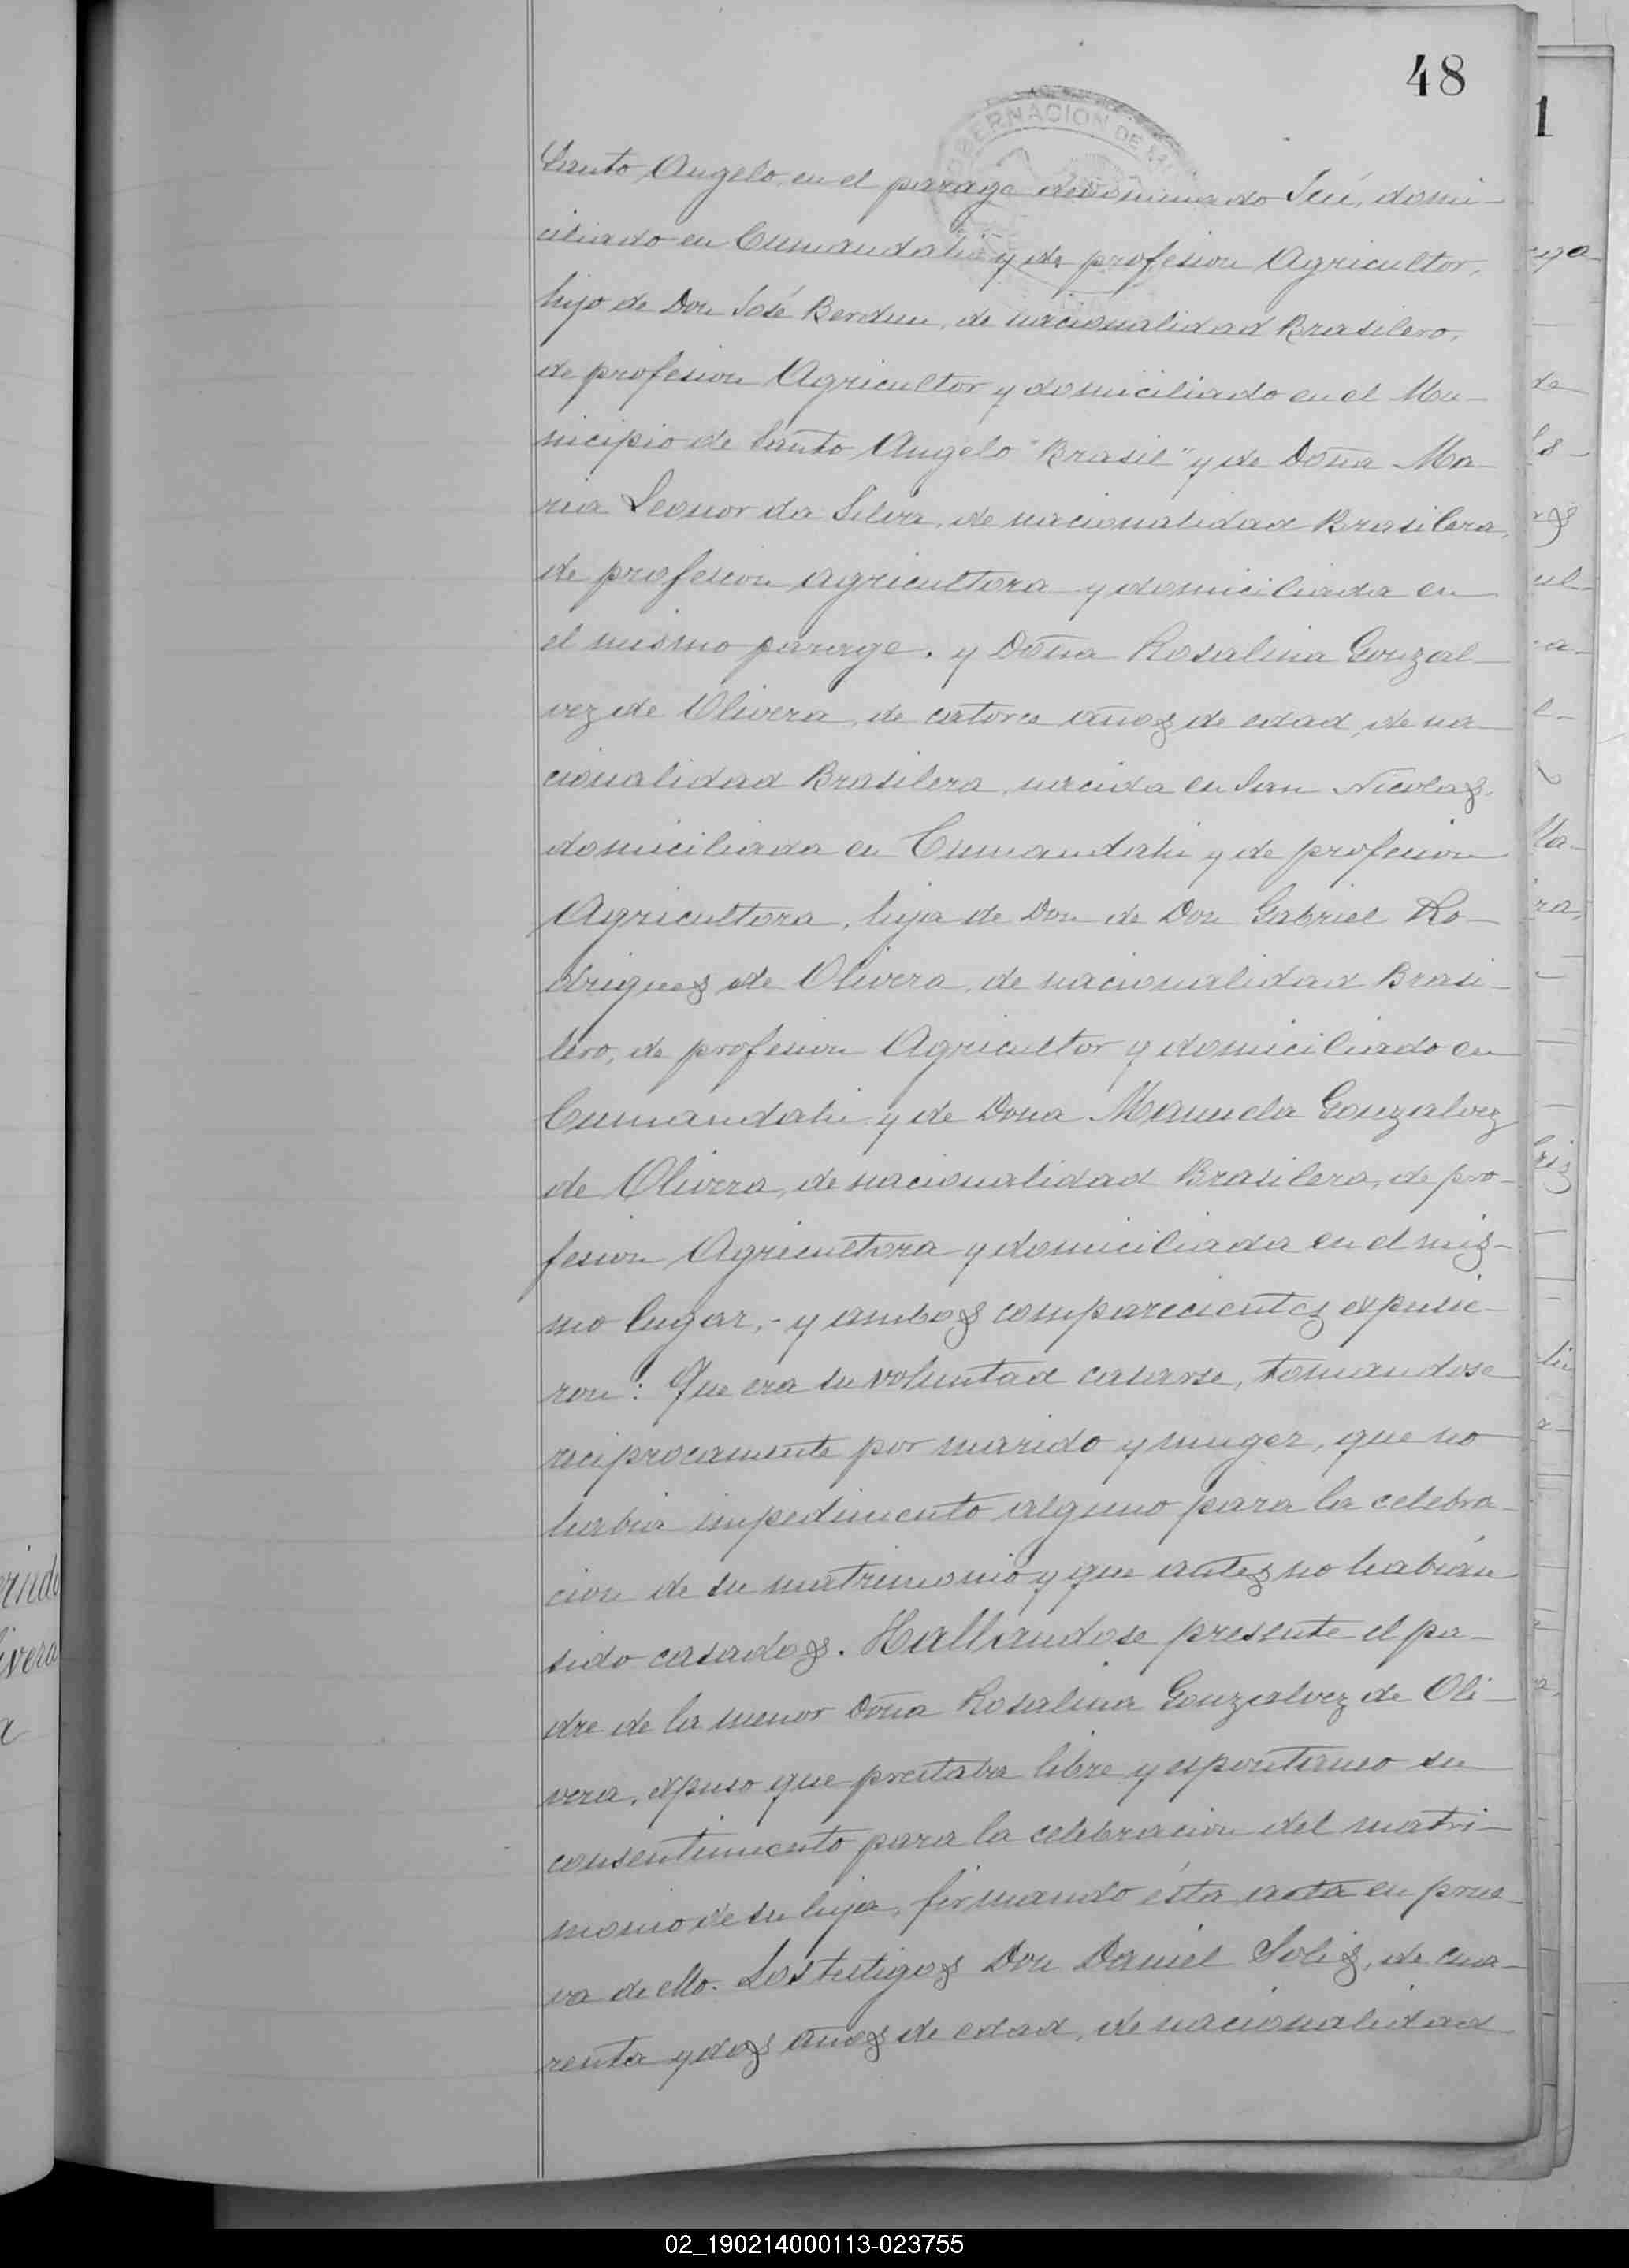 48
GOBERNACION DE
Santo Angelo en el parage denominado Ijuí, domi-
ciliado en Cumandahi y de profesion Agricultor,
hijo de Don José Berdun, de nacionalidad Brasilero,
de profesion Agricultor y domiciliado en el Mu-
nicipio de Santo Angelo "Brasil" y de Doña Ma-
ria Leonor da Silva, de nacionalidad Brasilera,
de profesion agricultora y domiciliada en
el mismo parage. y Doña Rosalina Gonzal-
vez de Olivera, de catorce años de edad, de na-
cionalidad Brasilera, nacida en San Nicolas,
domiciliada en Cumandahi y de profesion
Agricultora, hija de Don de Don Gabriel Ro-
drigues de Olivera, de nacionalidad Brasi-
lero, de profesion Agricultor y domiciliado en
Cumandahi y de Dona Manuela Gonzalvez
de Olivera, de nacionalidad Brasilera, de pro-
fesion Agricultora y domiciliada en el mis-
mo lugar,- y ambos comparecientes expusie-
ron: Que era su voluntad casarse, tomandose
reciprocamente por marido y muger, que no
habia impedimento alguno para la celebra-
cion de su matrimonio y que antes no habian
sido casados. Hallandose presente el pa-
dre de la menor Doña Rosalina Gonzalvez de Oli-
vera, expuso que prestaba libre y espontaneo su
consentimiento para la celebracion del matri-
monio de su hija, firmando ésta acta en prue-
va de ello. Los testigos Don Daniel Solis, de cua-
renta y dos años de edad, de nacionalidad
1
02_190214000113-023755